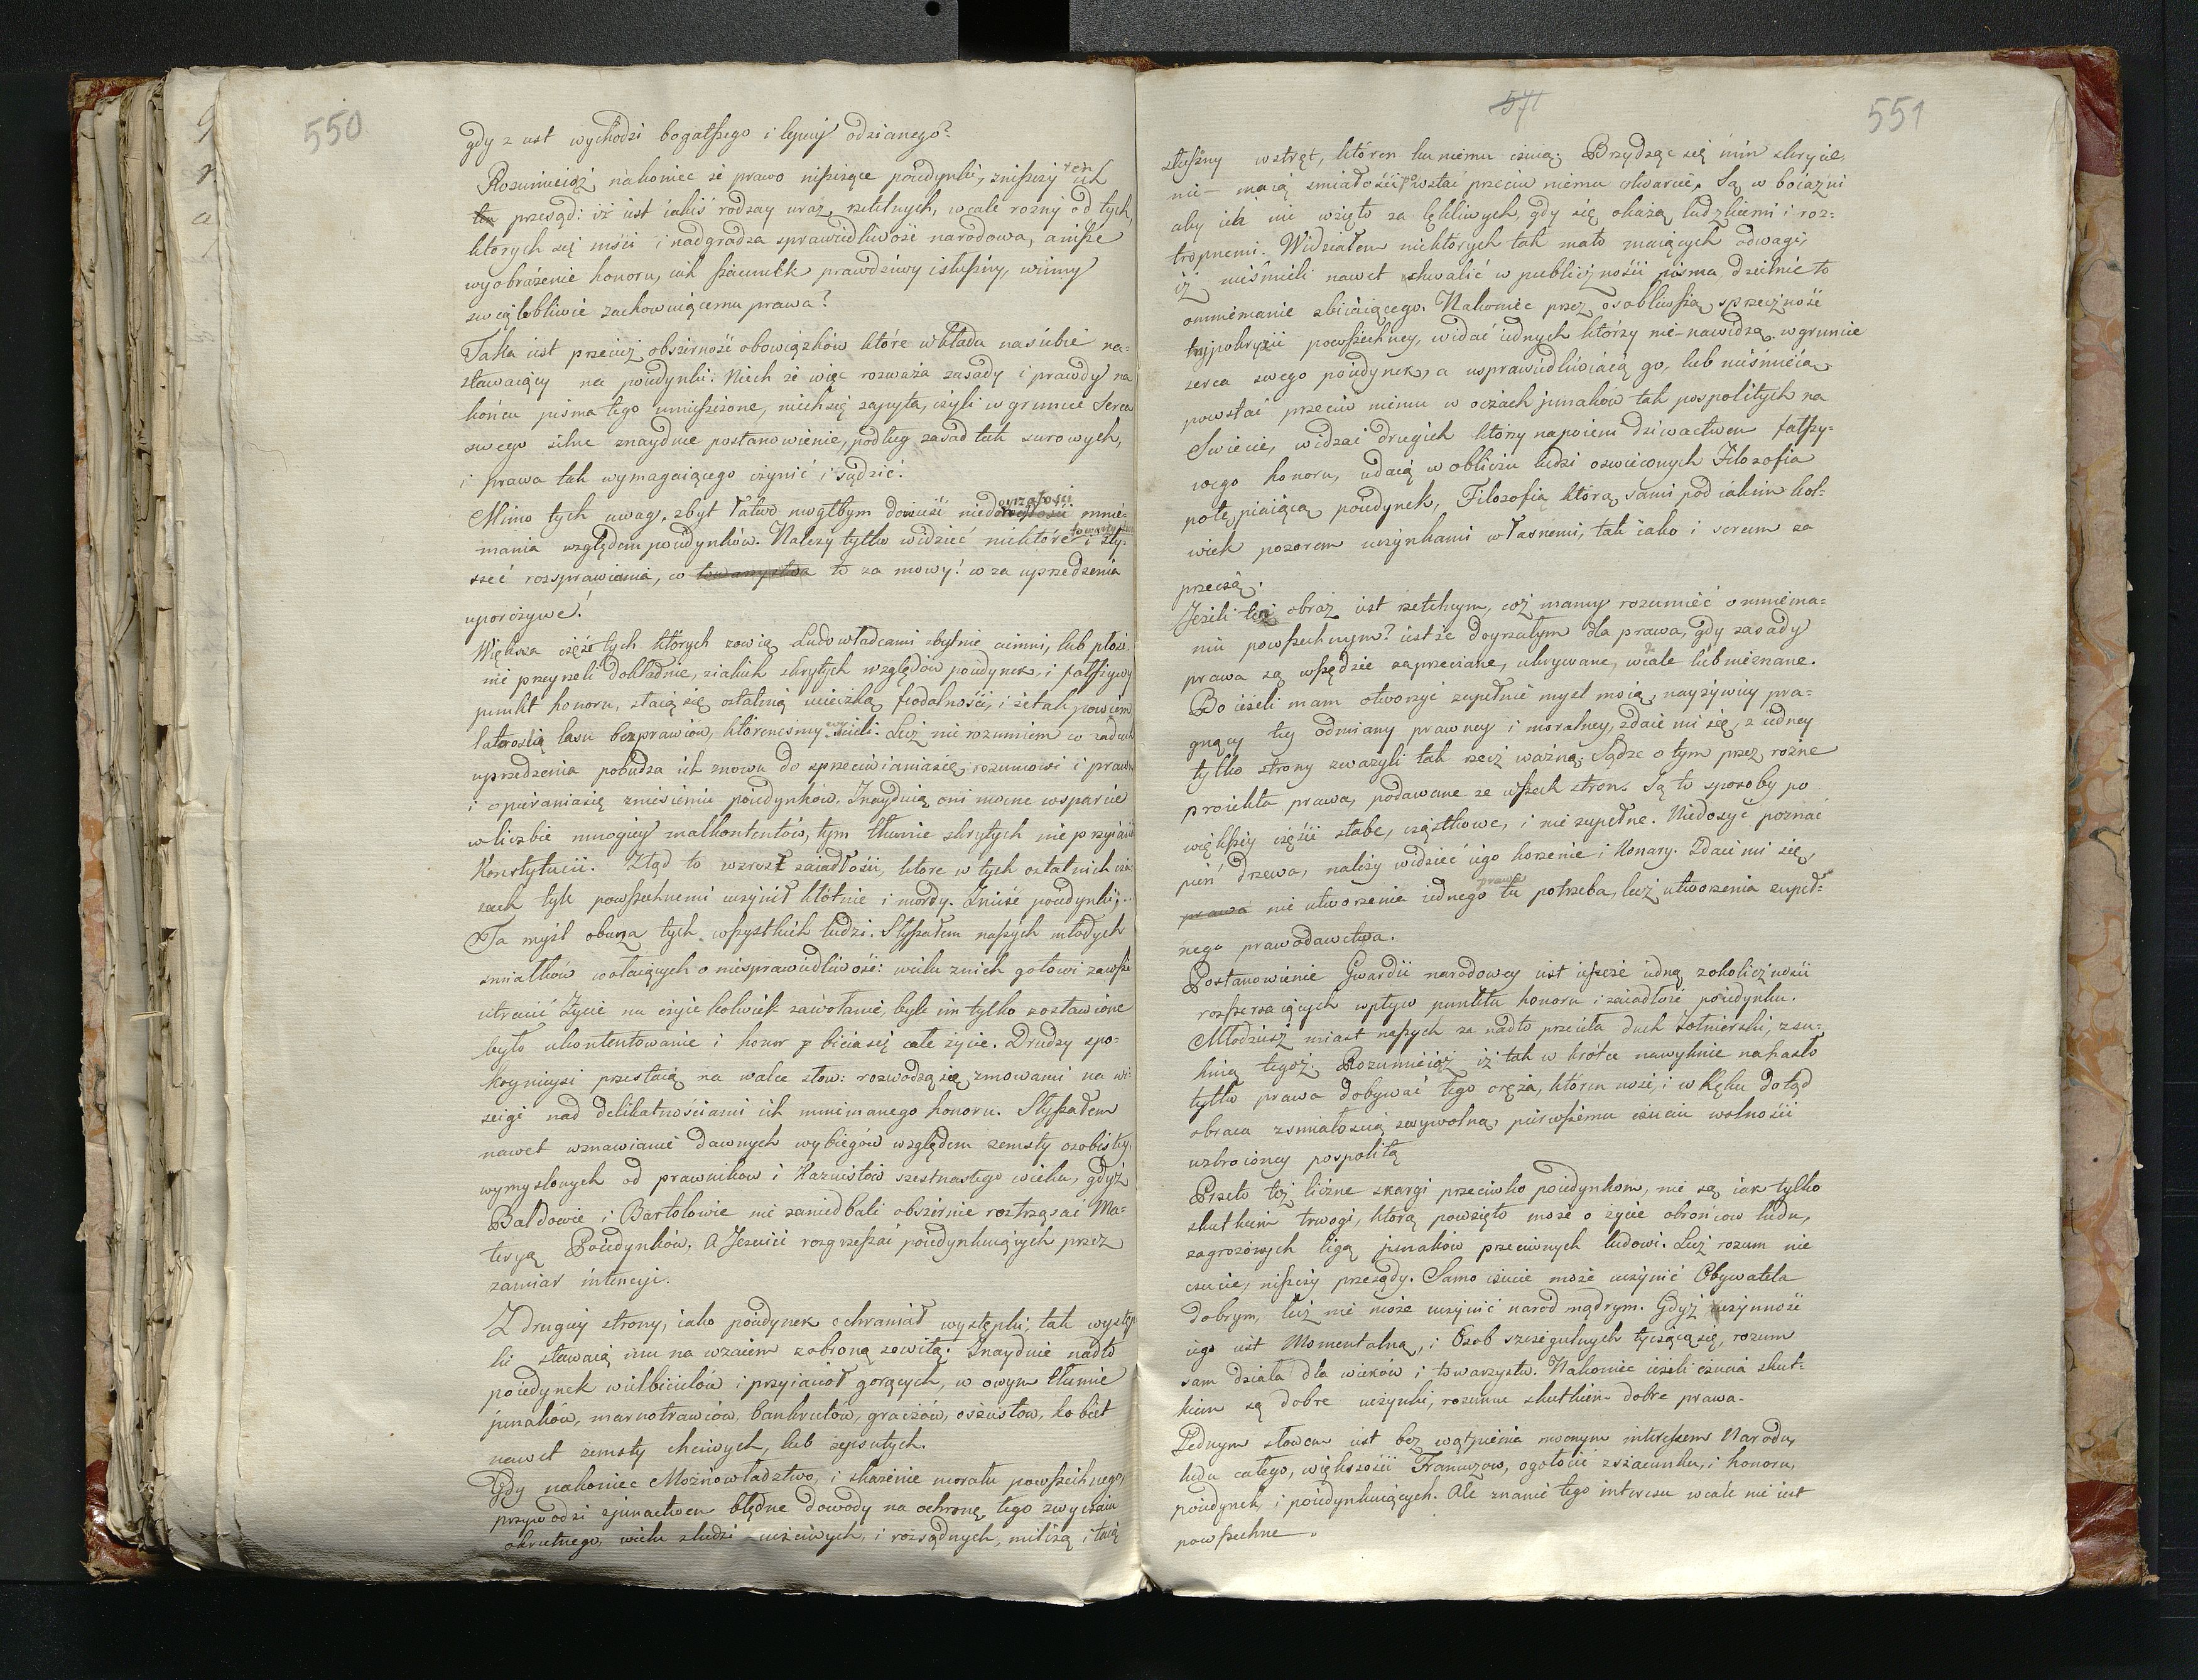 550
gdy z ust wychodzi bogatszego i lepiey odzianego?
Rozumieiąż nakoniec że prawo niszczące poiedynki, zniszczy ten ich
ten przesąd: iż iest iakiś rodzay uraz, rzetelnych, wcale rozny od tych,
których się mści i nadgradza sprawiedliwość narodowa, a insze
wyobrażenie honoru, iak szacunek prawdziwy i słuszny, winny
swiątobliwie zachowuiącemu prawa?
Taka iest przeciez obszerność obowiązków które wkłada na siebie na-
stawaiący na poiedynki. Niech że więc rozważa zasady i prawdy na
końcu pisma tego umieszczone, niech się zapyta, czyli w gruncie serca
swego silne znaydzie postanowienie, podług zasad tak surowych,
i prawa tak wymagaiącego czynić i sądzić.
Mimo tych uwag, zbyt łatwo mógłbym dowieść niedoyrzałości mnie-
mania względem poiedynków. Należy tylko widzieć niektóre towarzystwa i sły-
szeć rozprawiania, co towarzystwa to za mowy! co za uprzedzenia
uporczywe!
Większa część tych których zowią Ludowładcami zbytnie ciemni, lub płosi
nie przeyrzeli dokładnie, z iakich skrytych względów poiedynek, i fałszywy
punkt honoru, staią się ostatnią ucieczką feodalności, i że tak powiem
latoroslią lasu bezprawiów, któreniśmy wycieli. Lecz nie rozumiem co za duch
uprzedzenia pobudza ich znowu do sprzeciwiania się rozumowi i prawu
i opierania się zniesieniu poiedynków. Znayduią oni mocne wsparcie
w liczbie mnogiey malkontentów, tym tłumie skrytych nieprzyiaciół
Konstytucii. Ztąd to wzrost zaiadłości, które w tych ostatnich cza-
sach tyle powszechnemi uczynił kłótnie i mordy. Znieść poiedynki;..
Ta myśl oburza tych wszystkich ludzi. Słyszałem naszych młodych
smiałków wołaiących o niesprawiedliwość: wielu z nich gotowi zawsze
utracić życie na czyie kolwiek zawołanie, byle im tylko zostawione
było ukontentowanie i honor bicia się całe życie. Drudzy spo-
koynieysi przestaią na walce słow: rozwodzą się z mowami na wi-
seigi nad delikatnościami ich mniemanego honoru. Słyszałem
nawet wznawianie dawnych wybiegów względem zemsty osobistey,
wymyslonych od prawników i Kazuistów szesnastego wieku, gdyż
Baldowie i Bartolowie nie zaniedbali obszernie roztrząsać Ma-
teryą Poiedynków, a Jezuici rozgrzeszać poiedynkuiących przez
zamiar intencyi.
Z drugiey strony, iako poiedynek ochraniał występki, tak występ-
ki stawaią mu na wzaiem z obroną sowitą. Znaydzie nadto
poiedynek wielbicielów i przyiaciół gorących, w owym tłumie
junaków, marnotrawców, bankrutów, graczów, oszustów, kobiet
nawet zemsty chciwych, lub zepsutych.
Gdy nakoniec Możnowładztwo, i skażenie morału powszechnego,
przywodzi z junactwem błędne dowody na ochronę tego zwyczaiu
okrutnego, wielu z ludzi uczciwych, i rozsądnych, milczą i taią
571
551
słuszny wstręt, któren ku niemu czuią. Brzydząc się nim skrycie,
nie maią smiałości powstać przeciw niemu otwarcie. Są w boiazni
aby ich nie wzięto za lękliwych, gdy się okażą ludzkiemi i roz-
tropnemi. Widziałem niektórych tak mało maiących odwagi,
iż niesmieli nawet chwalić w publiczności pisma, dzielnie to
omniemanie zbiiaiącego. Nakoniec przez osobliwszą sprzeczność
hypokryzii powszechney, widać iednych którzy nie-nawidzą w gruncie
serca swego poiedynek, a usprawiedliwiaią go, lub nieśmieią
powstać przeciw niemu w oczach junaków tak pospolitych na
Swiecie, widzai drugich którzy napoieni dziwactwem fałszy-
wego honoru, udaią w obliczu ludzi oswieconych Filozofia
potępiaiącą poiedynek, Filozofią którą sami pod iakim kol-
wiek pozorem uczynkami własnemi, tak iako i sercem za
przeczą.
Jeżeli też obraz iest rzetelnym, coż mamy rozumieć o mniema-
niu powszechnym? iest że doyrzałym dla prawa, gdy zasady
prawa są wszędzie zaprzeciane, ukrywane, wcale lub nieznane.
Bo ieżeli mam otworzyć zupełnie mysl moią, nayżywiey pra-
gnący tey odmiany prawney i moralney, zdaie mi się, z iedney
tylko strony zważyli tak rzecz ważną. Sądze o tym przez rożne
proiekta prawa, podawane ze wszech stron. Są to sposoby po
większey części słabe, cząstkowe, i nie zupełne. Niedosyć poznać
pień drzewa, należy widzieć iego korzenie i Konary. Zdaie mi się,
prawa nie utworzenia iednego prawa tu potrzeba, lecz utworzenia zupeł-
nego prawodawctwa.
Postanowienie Gwardii narodowey iest ieszcze iedną z okoliczności
rozszerzaiących wpływ punktu honoru i zaiadłość poiedynku.
Młodzież miast naszych za nadto przeięła duch Żołnierski, z su-
knią tegoż. Rozumieiąż iż tak w krótce nawyknie na hasło
tylko prawa dobywać tego oręża, któren nosi, i w ręku dotąd
obraca z smiałoscią swywolną, pierwszemu czuciu wolności
uzbroioney pospolitą
Przeto też liczne skargi przeciwko poiedynkom, nie są iak tylko
skutkiem trwogi, którą powzięto może o życie obrońcow ludu,
zagrożonych ligą junaków przeciwnych ludowi. Lecz rozum nie
czucie, niszczy przesądy. Samo czucie może uczynić Obywatela
dobrym, lecz nie może uczynić narod mądrym. Gdyż czynność
iego iest Momentalną, i Osob szczegulnych tycząca się, rozum
sam działa dla wieków i towarzystw. Nakoniec ieżeli czucia skut-
kiem są dobre uczynki, rozumu skutkiem dobre prawa.
Jednym słowem iest bez wątpienia mocnym interessem Narodu,
ludu całego, większości Francuzow, ogołocić z szacunku, i honoru,
poiedynek, i poiedynkuiących. Ale znanie tego interesu wcale nie iest
powszechne.